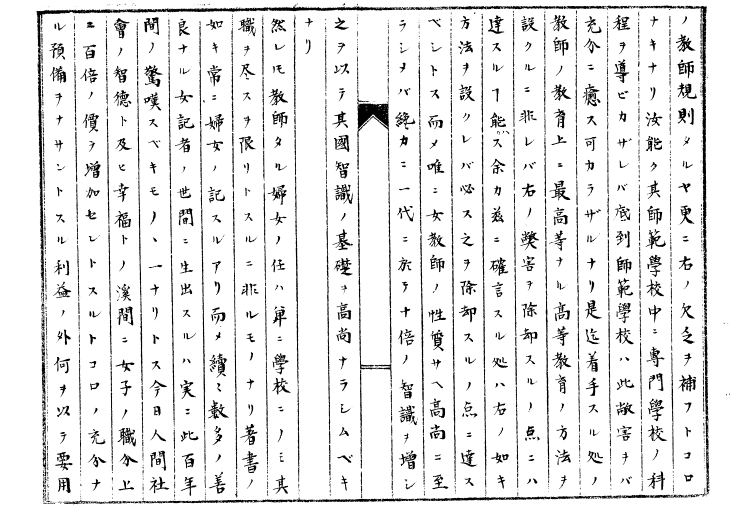 ノ教師規則タルヤ更ニ右ノ欠乏ヲ補フトコロ
ナキナリ汝能ク其師範學校中ニ専門學校ノ科
程ヲ導ビカザレバ底到師範學校ハ此敝害ヲバ
充分ニ癒ス可カラザルナリ是迄着手スル処ノ
教師ノ教育上ニ最高等ナル高等教育ノ方法ヲ
設クルニ非レバ右ノ獘害ヲ除却スルノ点ニハ
達スルヿ能ハス余カ茲ニ確言スル処ハ右ノ如キ
方法ヲ設クレバ必ス之ヲ除却スルノ点ニ達ス
ベシトス而メ唯ニ女教師ノ性質サヘ高尚ニ至
ラシメバ纔カニ一代ニ於テ十倍ノ智識ヲ増シ
之ヲ以テ其國智識ノ基礎ヲ高尚ナラシムベキ
ナリ
然レ𪜈教師タル婦女ノ任ハ単ニ學校ニノミ其
職ヲ尽スヲ限リトスルニ非ルモノナリ著書ノ
如キ常ニ婦女ノ記スルアリ而メ續々數多ノ善
良ナル女記者ノ世間ニ生出スルハ実ニ此百年
間ノ驚嘆スベキモノヽ一ナリトス今日人間社
會ノ智德ト及ヒ幸福トノ溪間ニ女子ノ職分上
ニ百倍ノ價ヲ増加セントスルトコロノ充分ナ
ル預備ヲナサントスル利益ノ外何ヲ以テ要用